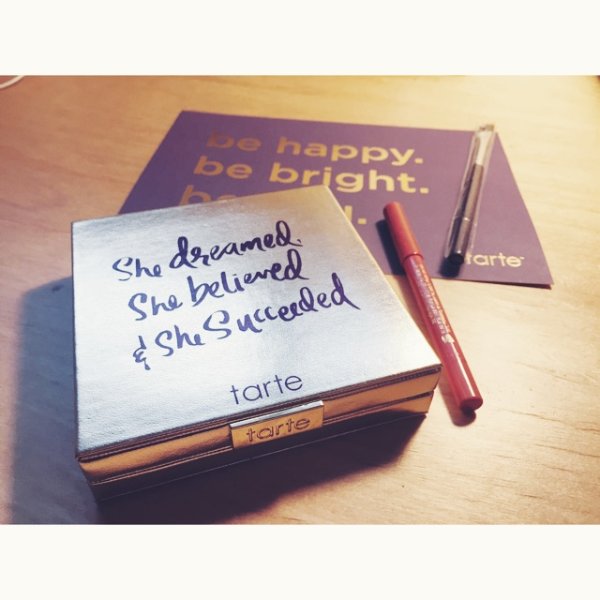 be happy.
be bright.
be
tarte™
She dreamed.
She believed
& She Succeeded
tarte
tarte